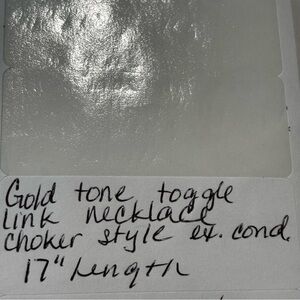 Gold tone toggle
link necklace
choker style ex. cond.
17" Length